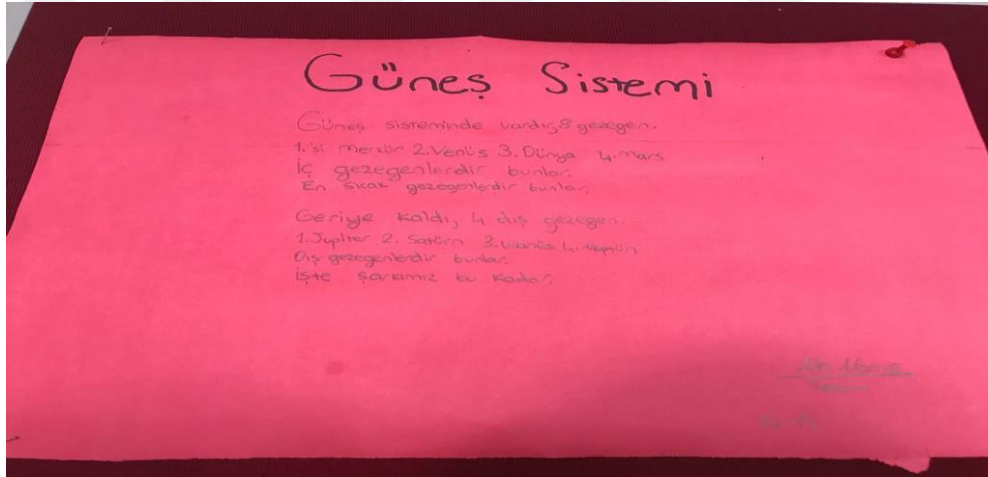 Güneş Sistemi
Güneş sisteminde vardır 8 gezegen.
1.'si merkür 2.Venüs 3. Dünya 4.Mars
İç gezegenlerdir bunlar.
En sıcak gezegenlerdir bunlar.
Geriye kaldı, 4 dış gezegen.
1.Jupiter 2. Satürn 3.uranüs 4.Neptün
Dış gezegenlerdir bunlar.
İşte şarkımız bu kadar.